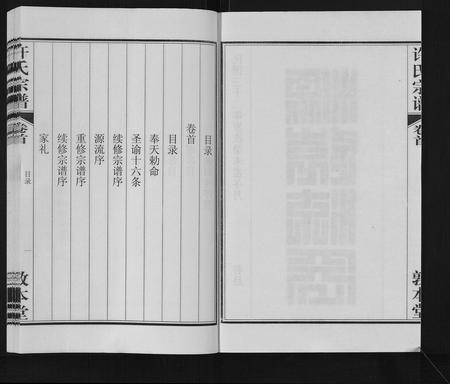 许氏宗谱
卷首
敦本堂
目录
卷首
目录
奉天勅命
圣谕十六条
续修宗谱序
源流序
重修宗谱序
续修宗谱序
家礼
许氏宗谱
卷首
目录
一
敦本堂